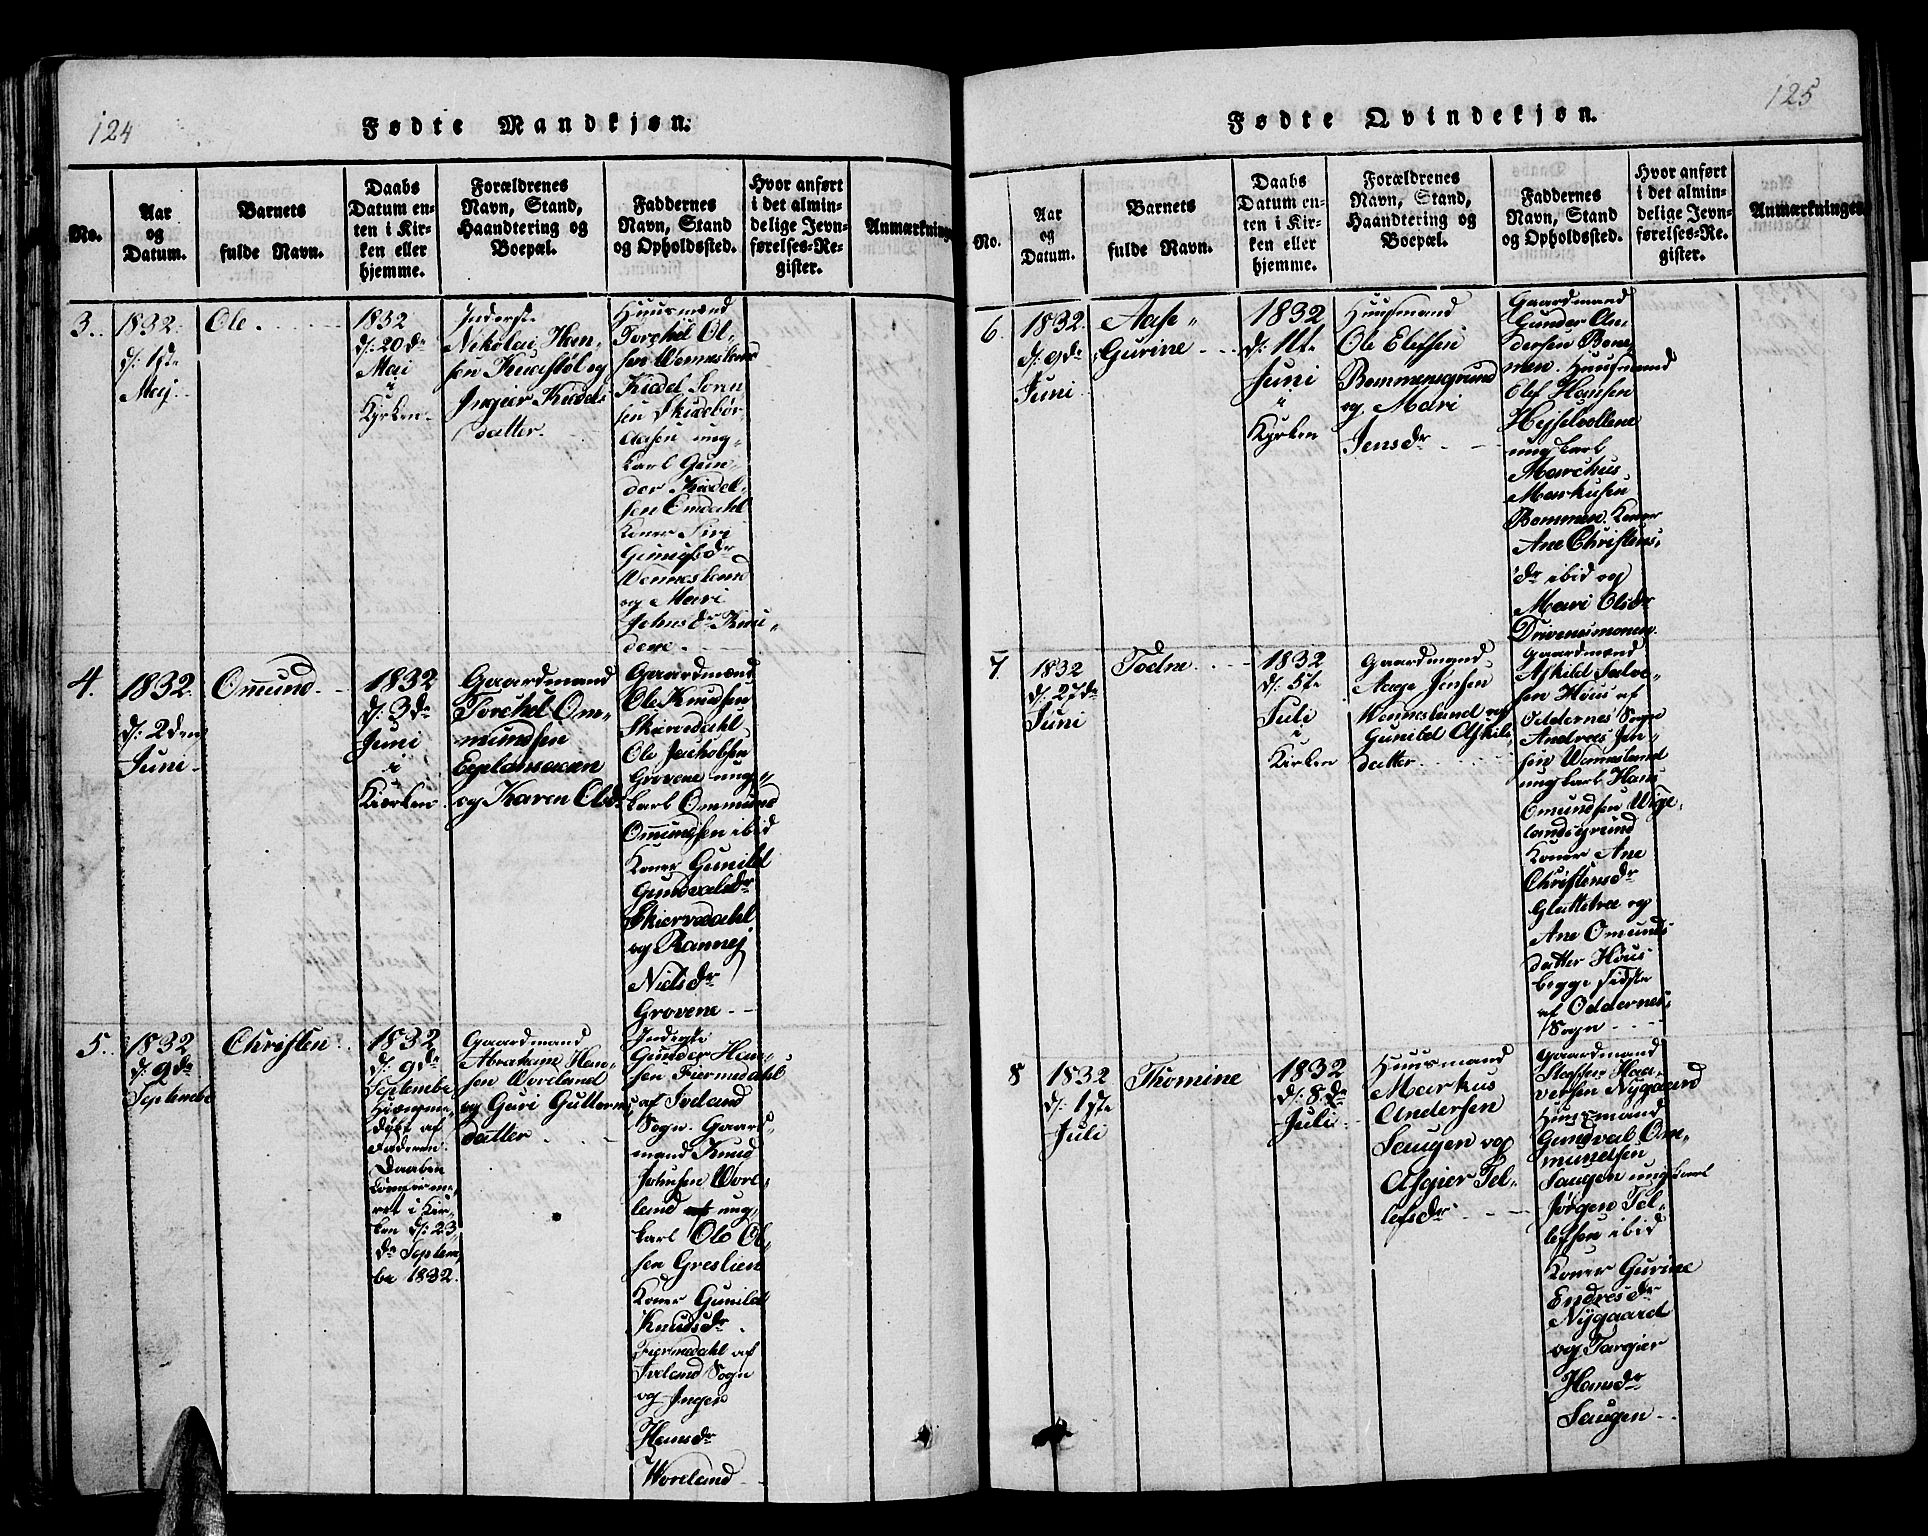 124
Fødte Mandkjøn.
No.
Aar
og
Datum.
Barnets
fulde Navn.
Daabs
Datum en-
ten i Kir-
ken eller
hjemme.
Forældrenes
Navn, Stand,
Haandtering og
Boepæl.
Faddernes
Navn, Stand
og Opholdssted.
Hvor anført
i det almin-
delige Jevn-
førelses-Re-
gister.
Anmærkninge
3.
1832.
d: 1ste
Maj.
Ole.
1832
d: 20de
Mai
i
Kirken.
Inderste
Nikolai Han-
sen
og
Ingier Kiedels
datter.
Huusmænd
Torchel Ol-
sen Wenneslands
Kiddel Tern
sen
aasen ung-
karl Gun-
der Kiddel-
sen Omdahl
Koner Siri
Wennesland
og Mari
Johnsdr Knu-
dene.
4.
1832.
d: 2den
Juni
Omund.
1832
d: 3de
Juni
i
Kirken
Gaardmand
Torchel Om-
mundsen
og Karen Olsdr
Gaardmænd
Ole Knudsen
Skierredahl
Ole Jachobsen
Grovene ung-
karl Ommund
Omundsen ibid
Koner Gunild
Gundvalsdr
Skierredahl
og Rannej
Nielsdr
Grovene
5.
1832
d: 9de
Septembe
Christen
1832
d: 9de
Septembe
Hiemme-
døbt af
Faderen.
Daaben
Confirme-
ret i Kir-
ken d: 23
de Septem
be 1832.
Gaardmand
Abraham Han-
sen Woreland
og Guri Guttorms
datter
Inderste
Gunder Han-
sen Fiermedahl
af Iveland
Sogn. Gaard-
mand Knud
Johnsen Wore-
land ung-
karl Ole Ol-
sen Greslien
Koner Gunild
Knudsdr
Fiermedahl af
Iveland Sogn
og Inger
Hansdr
Woreland
125
Fødte Qvindekjøn.
No.
Aar
og
Datum.
Barnets
fulde Navn.
Daabs
Datum en-
ten i Kir-
ken eller
hjemme.
Forældrenes
Navn, Stand,
Haandtering og
Boepæl.
Faddernes
Navn, Stand
og Opholdssted.
Hvor anført
i det almin-
delige Jevn-
førelses-Re-
gister.
Anmærkninger
6.
1832.
d: 9de
Juni
Aase
Gurine
1832
d: 11te
Juni
i
Kirken
Huusmand
Ole Elefsen
Bommensgrund
og Mari
Jensdr
Gaardmand
Gunder An-
dersen Bom-
men. Huusmænd
Olef Hansen
Hesselvollene
ungkarl
Marchus
Markusen
Bommen. Koner
Ane Christens-
dr ibid og
Mari Olsdr
Drivenesmonen.
7
1832
d: 27de
Juni
Todne
1832
d: 5te
Juli
i
Kirken
Gaardmand
Aage Jensen
Wennesland og
Gunild Askilds
datter
Gaardmænd
Askild Salve-
sen Hous af
Oddernes Sogn
Andreas Jen-
sen Wennesland
ungkarl Hans
Omundsen Wige-
landsgrund
Koner Ane
Christensdr
Glattetre og
Ane Omunds
datter Hous
begge sidste
af Oddernes
Sogn
8
1832
d: 1ste
Juli
Thomine
1832
d: 8de
Juli
Huusmand
Markus
Andersen
Saugen og
Asgier Tel-
lefsdr
Gaardmand
Staffen Haa-
versen Nygaard
Huusmand
Gundval Om-
mundsen
Saugen ungkarl
Jørgen Tel-
lefsen ibid
Koner Gurine
Endresdr
Nygaard
og Targier
Hansdr
Saugen